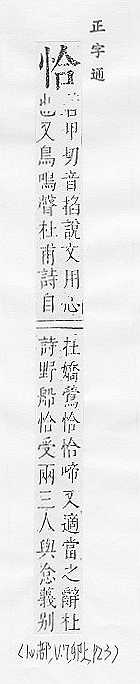 正字通
恰
苦甲切音掐說文用心
也又鳥鳴聲杜甫詩自
在嬌鶯恰恰啼又適當之辭杜
詩野船恰受兩三人與義別
(心部,V.7,卯上,P.23)